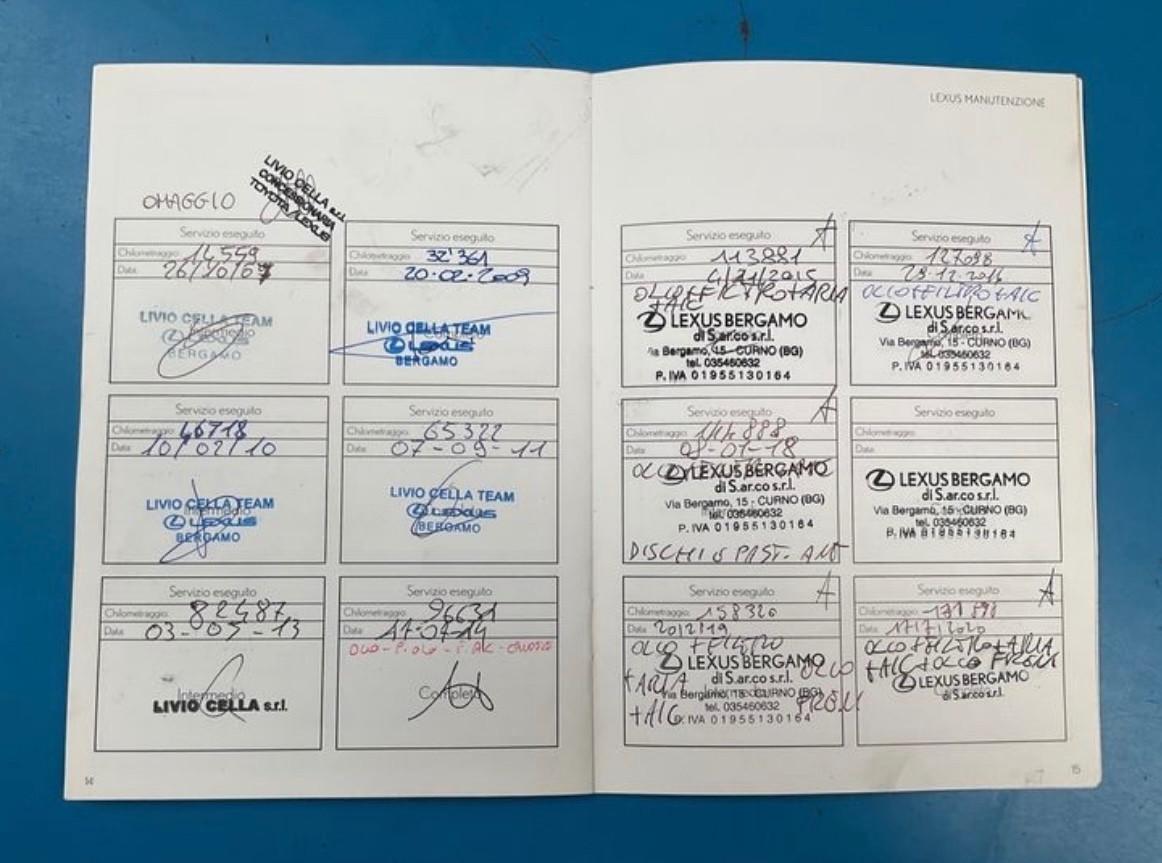 LEXUS MANUTENZIONE
OMAGGIO
LIVIO CELLA s.r.l.
CONCESSIONARIA
TOYOTA/LEXUS
Servizio eseguito
Chilometraggio 14559
Data
LIVIO CELLA TEAM
Intermedio
LEXUS
BERGAMO
Servizio eseguito
Chilometraggio 32'361
Data 20.02.2009
LIVIO CELLA TEAM
LEXUS
BERGAMO
Servizio eseguito
Chilometraggio 46718
Data 10/02/10
LIVIO CELLA TEAM
Intermedio
LEXUS
BERGAMO
Servizio eseguito
Chilometraggio 65322
Data 07-09-11
LIVIO CELLA TEAM
LEXUS
BERGAMO
Servizio eseguito
Chilometraggio 82487
Data 03-05-13
Intermedio
LIVIO CELLA s.r.l.
Servizio eseguito
Chilometraggio 96631
Data 17-07-14
Completo
14
Servizio eseguito
Chilometraggio 113881
Data
LEXUS BERGAMO
di S.ar.co s.r.l.
Via Bergamo, 15 - CURNO (BG)
tel. 035460632
P. IVA 01955130164
Servizio eseguito
Chilometraggio 127098
Data 28.12.2016
OLIO+FILTRO+AIC
LEXUS BERGAMO
di S.ar.co s.r.l.
Via Bergamo, 15 - CURNO (BG)
tel. 035460632
P. IVA 01955130164
Servizio eseguito
Chilometraggio
Data 08-01-18
LEXUS BERGAMO
di S.ar.co s.r.l.
Via Bergamo, 15 - CURNO (BG)
tel. 035460632
P. IVA 01955130164
DISCHI e PAST. ANT
Servizio eseguito
Chilometraggio
Data
LEXUS BERGAMO
di S.ar.co s.r.l.
Via Bergamo, 15 - CURNO (BG)
tel. 035460632
Servizio eseguito
Chilometraggio 158326
Data 20/2/19
OLIO + FILTRO
LEXUS BERGAMO
di S.ar.co s.r.l. OLIO
+ARIA
Via Bergamo, 15 - CURNO (BG)
tel. 035460632 FRENI
+AIC P. IVA 01955130164
Servizio eseguito
Chilometraggio 171898
Data 17/7/2020
OLIO+FILTRO+ARIA
+AIC+OLIO FRENI
LEXUS BERGAMO
di S.ar.co s.r.l.
15